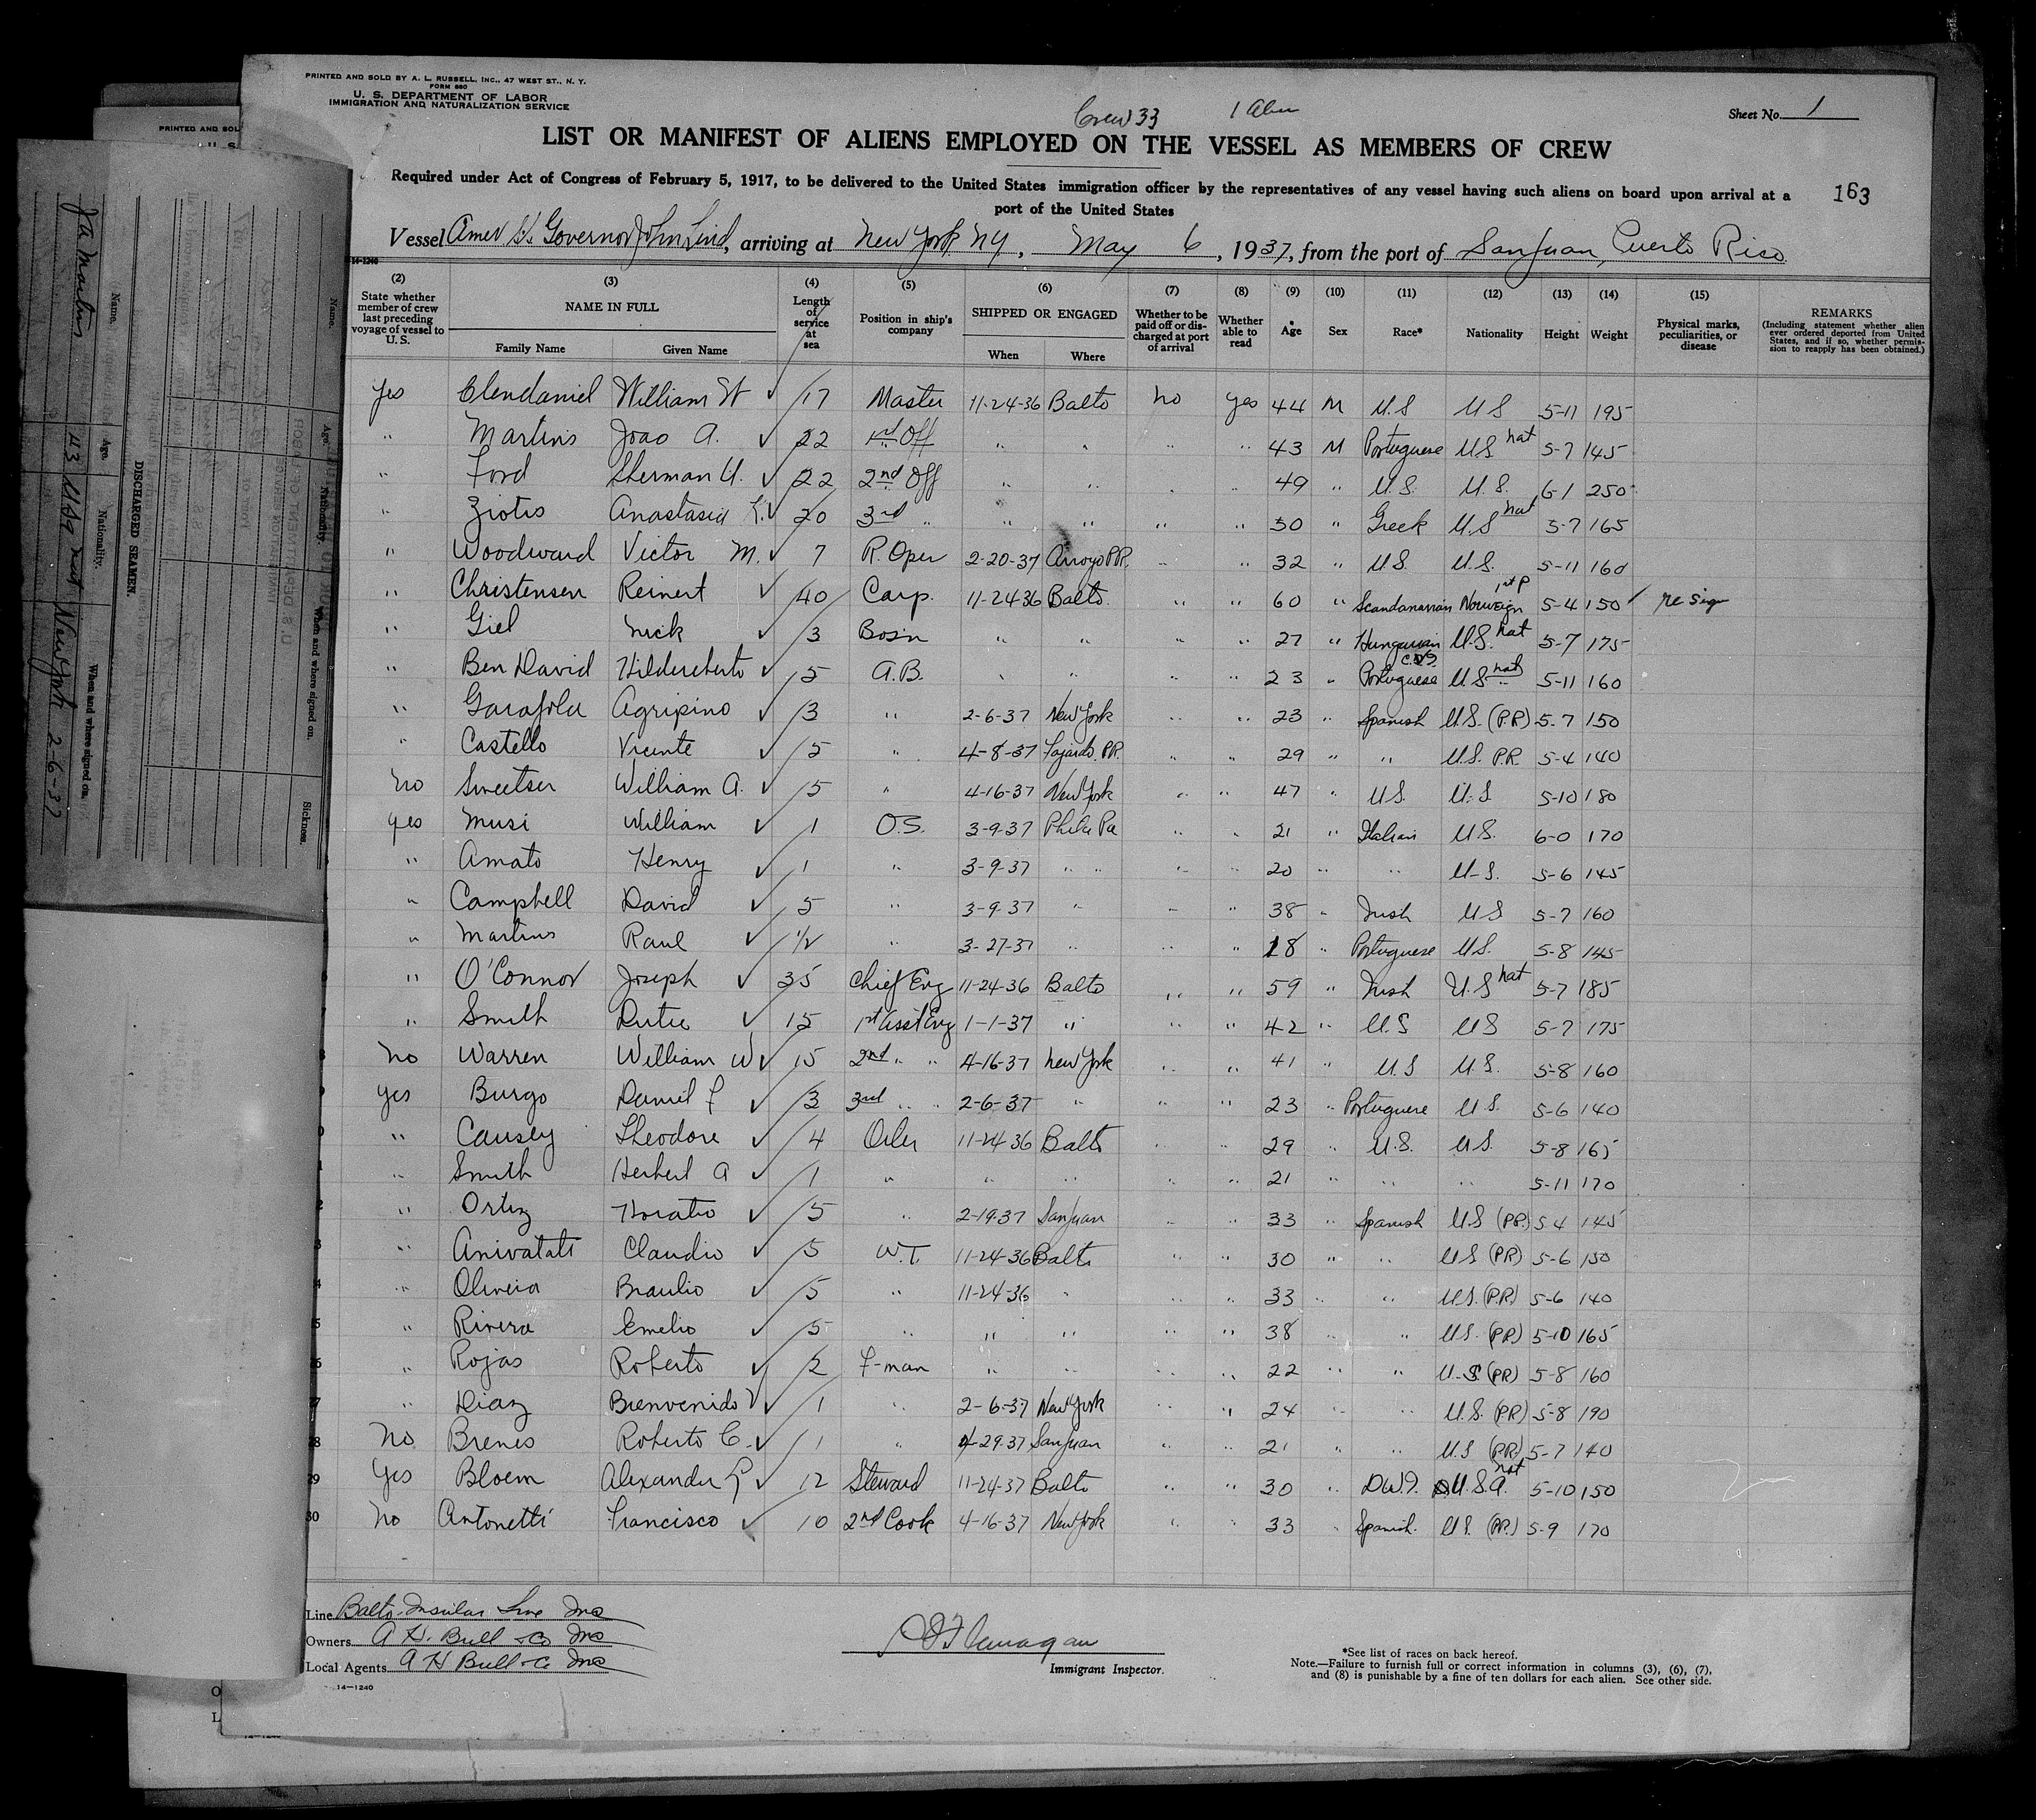 PRINTED AND SOLD BY A. L. RUSSELL, INC., 47 WEST ST., N. Y.
FORM 680
U. S. DEPARTMENT OF LABOR
IMMIGRATION AND NATURALIZATION SERVICE
Crew 33 1 Alien
Sheet No. 1
LIST OR MANIFEST OF ALIENS EMPLOYED ON THE VESSEL AS MEMBERS OF CREW
Required under Act of Congress of February 5, 1917, to be delivered to the United States immigration officer by the representatives of any vessel having such aliens on board upon arrival at a
port of the United States
163
Vessel Amer SS Governor John Lind, arriving at New York NY, May 6, 1937, from the port of San Juan, Puerto Rico
14-1240
(2) (3) (4) (5) (6) (7) (8) (9) (10) (11) (12) (13) (14) (15)
State whether member of crew last preceding voyage of vessel to U. S. NAME IN FULL Family Name Given Name Length of service at sea Position in ship's company SHIPPED OR ENGAGED When Where Whether to be paid off or discharged at port of arrival Whether able to read Age Sex Race* Nationality Height Weight Physical marks, peculiarities, or disease REMARKS (Including statement whether alien ever ordered deported from United States, and if so, whether permission to reapply has been obtained.)
Yes Clendaniel William W ✓ 17 Master 11-24-36 Balto No Yes 44 M U.S U S 5-11 195
" Martins Joao A. ✓ 22 1st Off " " " 43 M Portuguese U S nat 5-7 145
" Ford Sherman U. ✓ 22 2nd Off " " " " 49 " U.S. U.S. 6-1 250
" Ziotis Anastasia K. ✓ 20 3rd " " " " " 30 " Greek U.S nat 5-7 165
" Woodward Victor M. ✓ 7 R. Oper 2-20-37 Arroyo P.R. " " 32 " U.S U.S. 5-11 160
" Christensen Reinert ✓ 40 Carp. 11-24 36 Balto. " " 60 " Scandanavian Norweign 1st P 5-4 150 re sign
" Giel Nick ✓ 3 Bosn " " " " 27 " Hungarian U.S. nat 5-7 175
" Ben David Hildereberto ✓ 5 A.B. " " " " 23 " Portuguese C.V.I. U S nat 5-11 160
" Garafola Agripino ✓ 3 " 2-6-37 New York " " 23 " Spanish U.S. (P.R) 5-7 150
" Castello Vicente ✓ 5 " 4-8-37 Fajardo. P.R. " " 29 " " U.S. P.R. 5-4 140
No Sweetser William A. ✓ 5 " 4-16-37 New York " " 47 " U.S. U.S 5-10 180
Yes Musi William ✓ 1 O.S. 3-9-37 Phila Pa " " 21 " Italian U.S. 6-0 170
" Amato Henry ✓ 1 " 3-9-37 " " " " 20 " " U-S. 5-6 145
" Campbell David ✓ 5 " 3-9-37 " " " 38 " Irish U S 5-7 160
" Martins Raul ✓ 1/2 " 3-27-37 " " " 18 " Portuguese U.S. 5-8 145
" O'Connor Joseph ✓ 35 Chief Eng 11-24-36 Balto " " 59 " Irish U.S nat 5-7 185
" Smith Dutie ✓ 15 1st Asst Eng 1-1-37 " " " 42 " U.S U S 5-7 175
No Warren William W ✓ 15 2nd " " 4-16-37 New York " " 41 " U.S U.S. 5-8 160
Yes Burgo Daniel F ✓ 3 3rd " " 2-6-37 " " " 23 " Portuguese U.S. 5-6 140
" Causey Theodore ✓ 4 Oiler 11-24 36 Balto " " 29 " U.S. U.S. 5-8 165
" Smith Herbert A ✓ 1 " " " " " 21 " " " 5-11 170
" Ortiz Horatio ✓ 5 " 2-19-37 San Juan " " 33 " Spanish U S (P.R.) 5 4 145
" Anivatati Claudio ✓ 5 W.T. 11-24-36 Balto " " 30 " " U S (P.R) 5-6 150
" Oliveira Braulio ✓ 5 " 11-24-36 " " " 33 " " U.S. (P.R.) 5-6 140
" Rivera Emelio ✓ 5 " " " " " 38 " " U.S. (P.R.) 5-10 165
26 " Rojas Roberto ✓ 2 F-man " " " " 22 " " U-S (PR) 5-8 160
27 " Diaz Bienvenido V ✓ 1 " 2-6-37 New York " " 24 " " U.S. (P.R) 5-8 190
28 No Brenes Roberto C. ✓ 1 " 4-29-37 San Juan " " 21 " " U.S (P.R.) 5-7 140
29 Yes Bloem Alexander R ✓ 12 Steward 11-24-37 Balto " " 30 " D.W.I. U.S.A. nat 5-10 150
30 No Antonetti Francisco ✓ 10 2nd Cook 4-16-37 New York " " 33 " Spanish. U.S. (P.R.) 5-9 170
Line Balto-Insular Line Inc
Owners A H. Bull & Co Inc
Local Agents A H Bull & Co Inc
14—1240
Flanagan
Immigrant Inspector.
*See list of races on back hereof.
Note.—Failure to furnish full or correct information in columns (3), (6), (7),
and (8) is punishable by a fine of ten dollars for each alien. See other side.
PRINTED AND SOL
DISCHARGED SEAMEN.
Name. Age. Nationality. When and where signed on.
J A Martins 43 USA nat New York 2-6-37
Name. Age. Nationality. When and where signed on. Sickness.